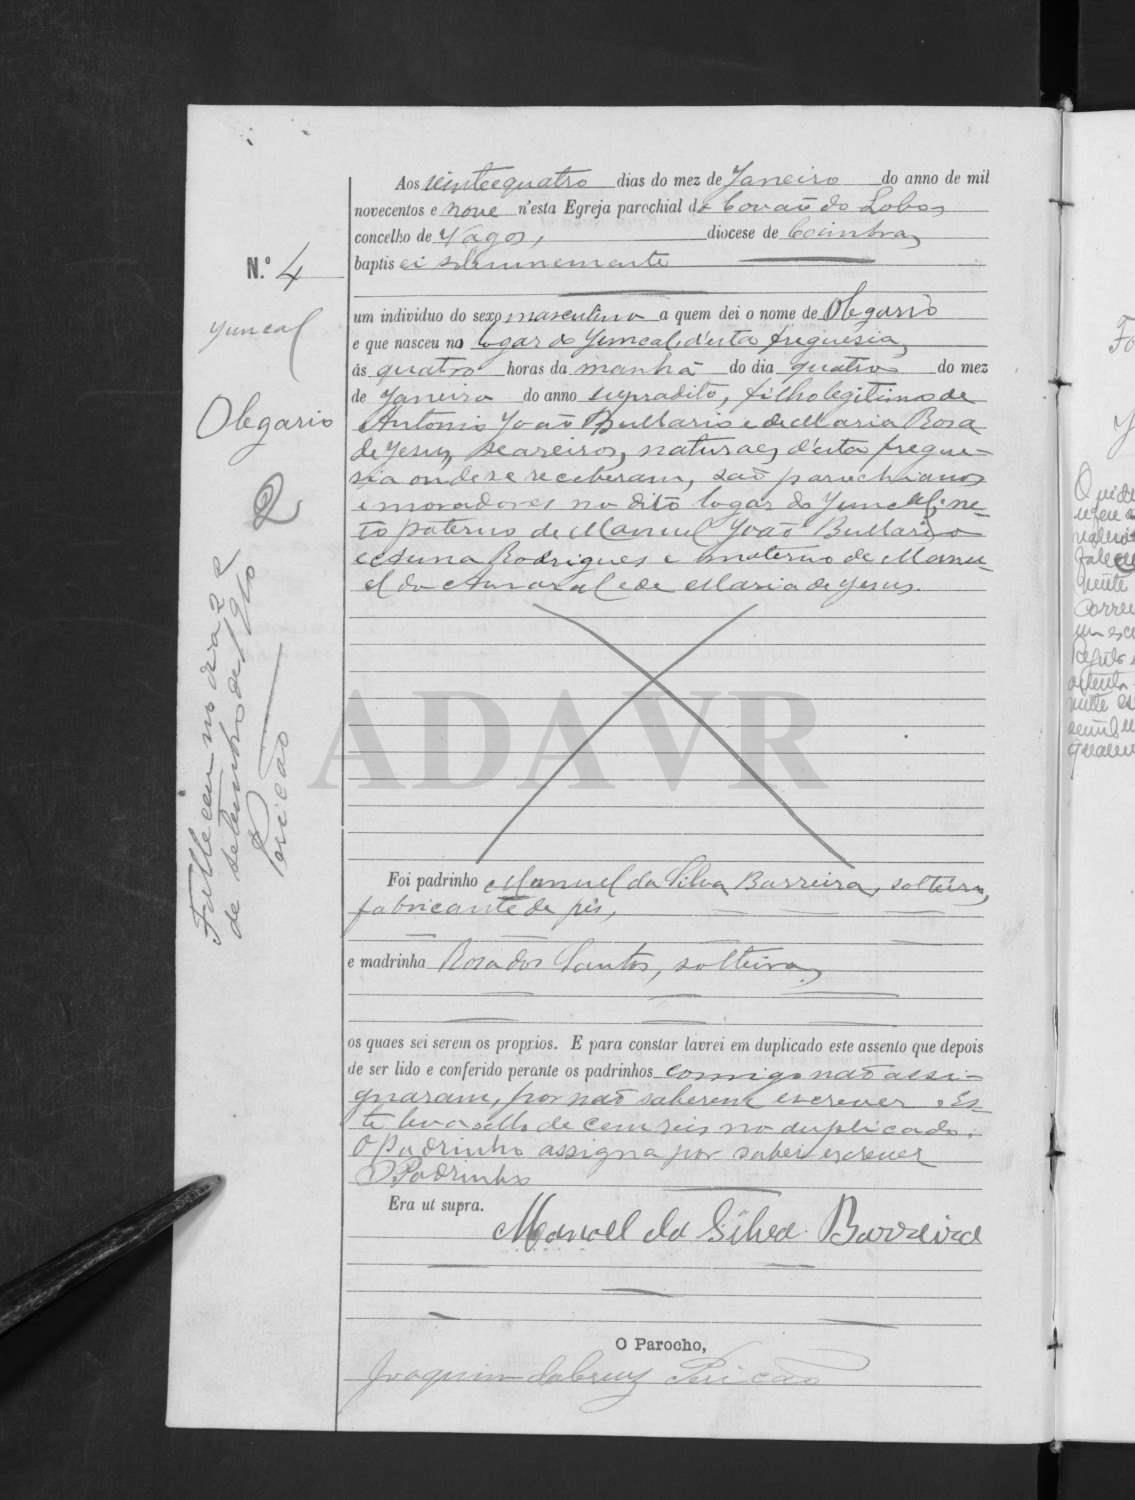 Aos vinte e quatro dias do mez de Janeiro do anno de mil
novecentos e nove n'esta Egreja parochial de Covão do Lobo,
concelho de Vagos, diocese de Coimbra,
baptisei solemnemente
N.º 4
um individuo do sexo masculino a quem dei o nome de Olegario
Juncal
e que nasceu no logar do Juncal, d'esta freguesia,
ás quatro horas da manhã do dia quatro do mez
de Janeiro do anno supradito, filho legitimo de
Olegario
Antonio João Bullario e de Maria Rosa
de Jesus, seareiros, naturaes d'esta fregue-
sia onde se receberam, são parochianos
e moradores no dito logar do Juncal; ne-
to paterno de Manuel João Bullario
e Anna Rodrigues e materno de Manu-
el do Amaral e de Maria de Jesus.
Falleceu no dia 22
de setembro de 1910
Pericão
ADAVR
Foi padrinho Manuel da Silva Barreira, solteiro,
fabricante de
e madrinha Rosa dos Santos, solteira,
os quaes sei serem os proprios. E para constar lavrei em duplicado este assento que depois
de ser lido e conferido perante os padrinhos comigo não assi-
gnaram, por não saberem escrever. Es-
te leva sello de cem reis no duplicado.
O Padrinho assigna por saber escrever
O Padrinho
Era ut supra.
Manoel da Silva Barreira
O Parocho,
Joaquim da Cruz Pericão